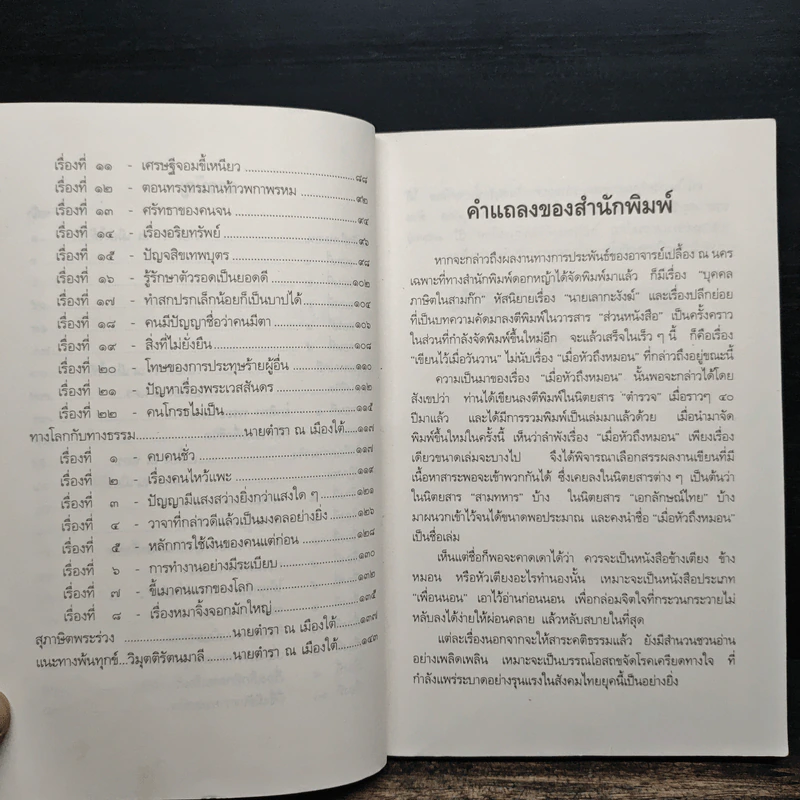 เรื่องที่ ๑๑ - เศรษฐีจอมขี้เหนียว ๘๘
เรื่องที่ ๑๒ - ตอนทรงทรมานท้าวพกาพรหม ๙๒
เรื่องที่ ๑๓ - ศรัทธาของคนจน ๙๔
เรื่องที่ ๑๔ - เรื่องอริยทรัพย์ ๙๖
เรื่องที่ ๑๕ - ปัญจสิขเทพบุตร ๙๘
เรื่องที่ ๑๖ - รู้รักษาตัวรอดเป็นยอดดี ๑๐๒
เรื่องที่ ๑๗ - ทำสกปรกเล็กน้อยก็เป็นบาปได้ ๑๐๔
เรื่องที่ ๑๘ - คนมีปัญญาชื่อว่าคนมีตา ๑๐๖
เรื่องที่ ๑๙ - สิ่งที่ไม่ยั่งยืน ๑๐๘
เรื่องที่ ๒๐ - โทษของการประทุษร้ายผู้อื่น ๑๑๐
เรื่องที่ ๒๑ - ปัญหาเรื่องพระเวสสันดร ๑๑๒
เรื่องที่ ๒๒ - คนโกรธไม่เป็น ๑๑๕
ทางโลกกับทางธรรม นายตำรา ณ เมืองใต้ ๑๑๗
เรื่องที่ ๑ - คบคนชั่ว ๑๑๗
เรื่องที่ ๒ - เรื่องคนไหว้แพะ ๑๑๙
เรื่องที่ ๓ - ปัญญามีแสงสว่างยิ่งกว่าแสงใด ๆ ๑๒๑
เรื่องที่ ๔ - วาจาที่กล่าวดีแล้วเป็นมงคลอย่างยิ่ง ๑๒๖
เรื่องที่ ๕ - หลักการใช้เงินของคนแต่ก่อน ๑๒๘
เรื่องที่ ๖ - การทำงานอย่างมีระเบียบ ๑๓๐
เรื่องที่ ๗ - ขี้เมาคนแรกของโลก ๑๓๒
เรื่องที่ ๘ - เรื่องหมาจิ้งจอกมักใหญ่ ๑๓๕
สุภาษิตพระร่วง นายตำรา ณ เมืองใต้ ๑๓๗
แนะทางพ้นทุกข์...วิมุตติรัตนมาลี นายตำรา ณ เมืองใต้ ๑๔๓
คำแถลงของสำนักพิมพ์
หากจะกล่าวถึงผลงานทางการประพันธ์ของอาจารย์เปลื้อง ณ นคร
เฉพาะที่ทางสำนักพิมพ์ดอกหญ้าได้จัดพิมพ์มาแล้ว ก็มีเรื่อง "บุคคล
ภาษิตในสามก๊ก" หัสนิยายเรื่อง "นายเลากะงังฆ์" และเรื่องปลีกย่อย
ที่เป็นบทความคัดมาลงตีพิมพ์ในวารสาร "ส่วนหนังสือ" เป็นครั้งคราว
ในส่วนที่กำลังจัดพิมพ์ขึ้นใหม่อีก จะแล้วเสร็จในเร็ว ๆ นี้ ก็คือเรื่อง
"เขียนไว้เมื่อวันวาน" ไม่นับเรื่อง "เมื่อหัวถึงหมอน" ที่กล่าวถึงอยู่ขณะนี้
ความเป็นมาของเรื่อง "เมื่อหัวถึงหมอน" นั้นพอจะกล่าวได้โดย
สังเขปว่า ท่านได้เขียนลงตีพิมพ์ในนิตยสาร "ตำรวจ" เมื่อราวๆ ๔๐
ปีมาแล้ว และได้มีการรวมพิมพ์เป็นเล่มมาแล้วด้วย เมื่อนำมาจัด
พิมพ์ขึ้นใหม่ในครั้งนี้ เห็นว่าลำพังเรื่อง "เมื่อหัวถึงหมอน" เพียงเรื่อง
เดียวขนาดเล่มจะบางไป จึงได้พิจารณาเลือกสรรผลงานเขียนที่มี
เนื้อหาสาระพอจะเข้าพวกกันได้ ซึ่งเคยลงในนิตยสารต่าง ๆ เป็นต้นว่า
ในนิตยสาร "สามทหาร" บ้าง ในนิตยสาร "เอกลักษณ์ไทย" บ้าง
มาผนวกเข้าไว้จนได้ขนาดพอประมาณ และคงนำชื่อ "เมื่อหัวถึงหมอน"
เป็นชื่อเล่ม
เห็นแต่ชื่อก็พอจะคาดเดาได้ว่า ควรจะเป็นหนังสือข้างเตียง ข้าง
หมอน หรือหัวเตียงอะไรทำนองนั้น เหมาะจะเป็นหนังสือประเภท
"เพื่อนนอน" เอาไว้อ่านก่อนนอน เพื่อกล่อมจิตใจที่กระวนกระวายไม่
หลับลงได้ง่ายให้ผ่อนคลาย แล้วหลับสบายในที่สุด
แต่ละเรื่องนอกจากจะให้สาระคติธรรมแล้ว ยังมีสำนวนชวนอ่าน
อย่างเพลิดเพลิน เหมาะจะเป็นบรรณโอสถขจัดโรคเครียดทางใจ ที่
กำลังแพร่ระบาดอย่างรุนแรงในสังคมไทยยุคนี้เป็นอย่างยิ่ง